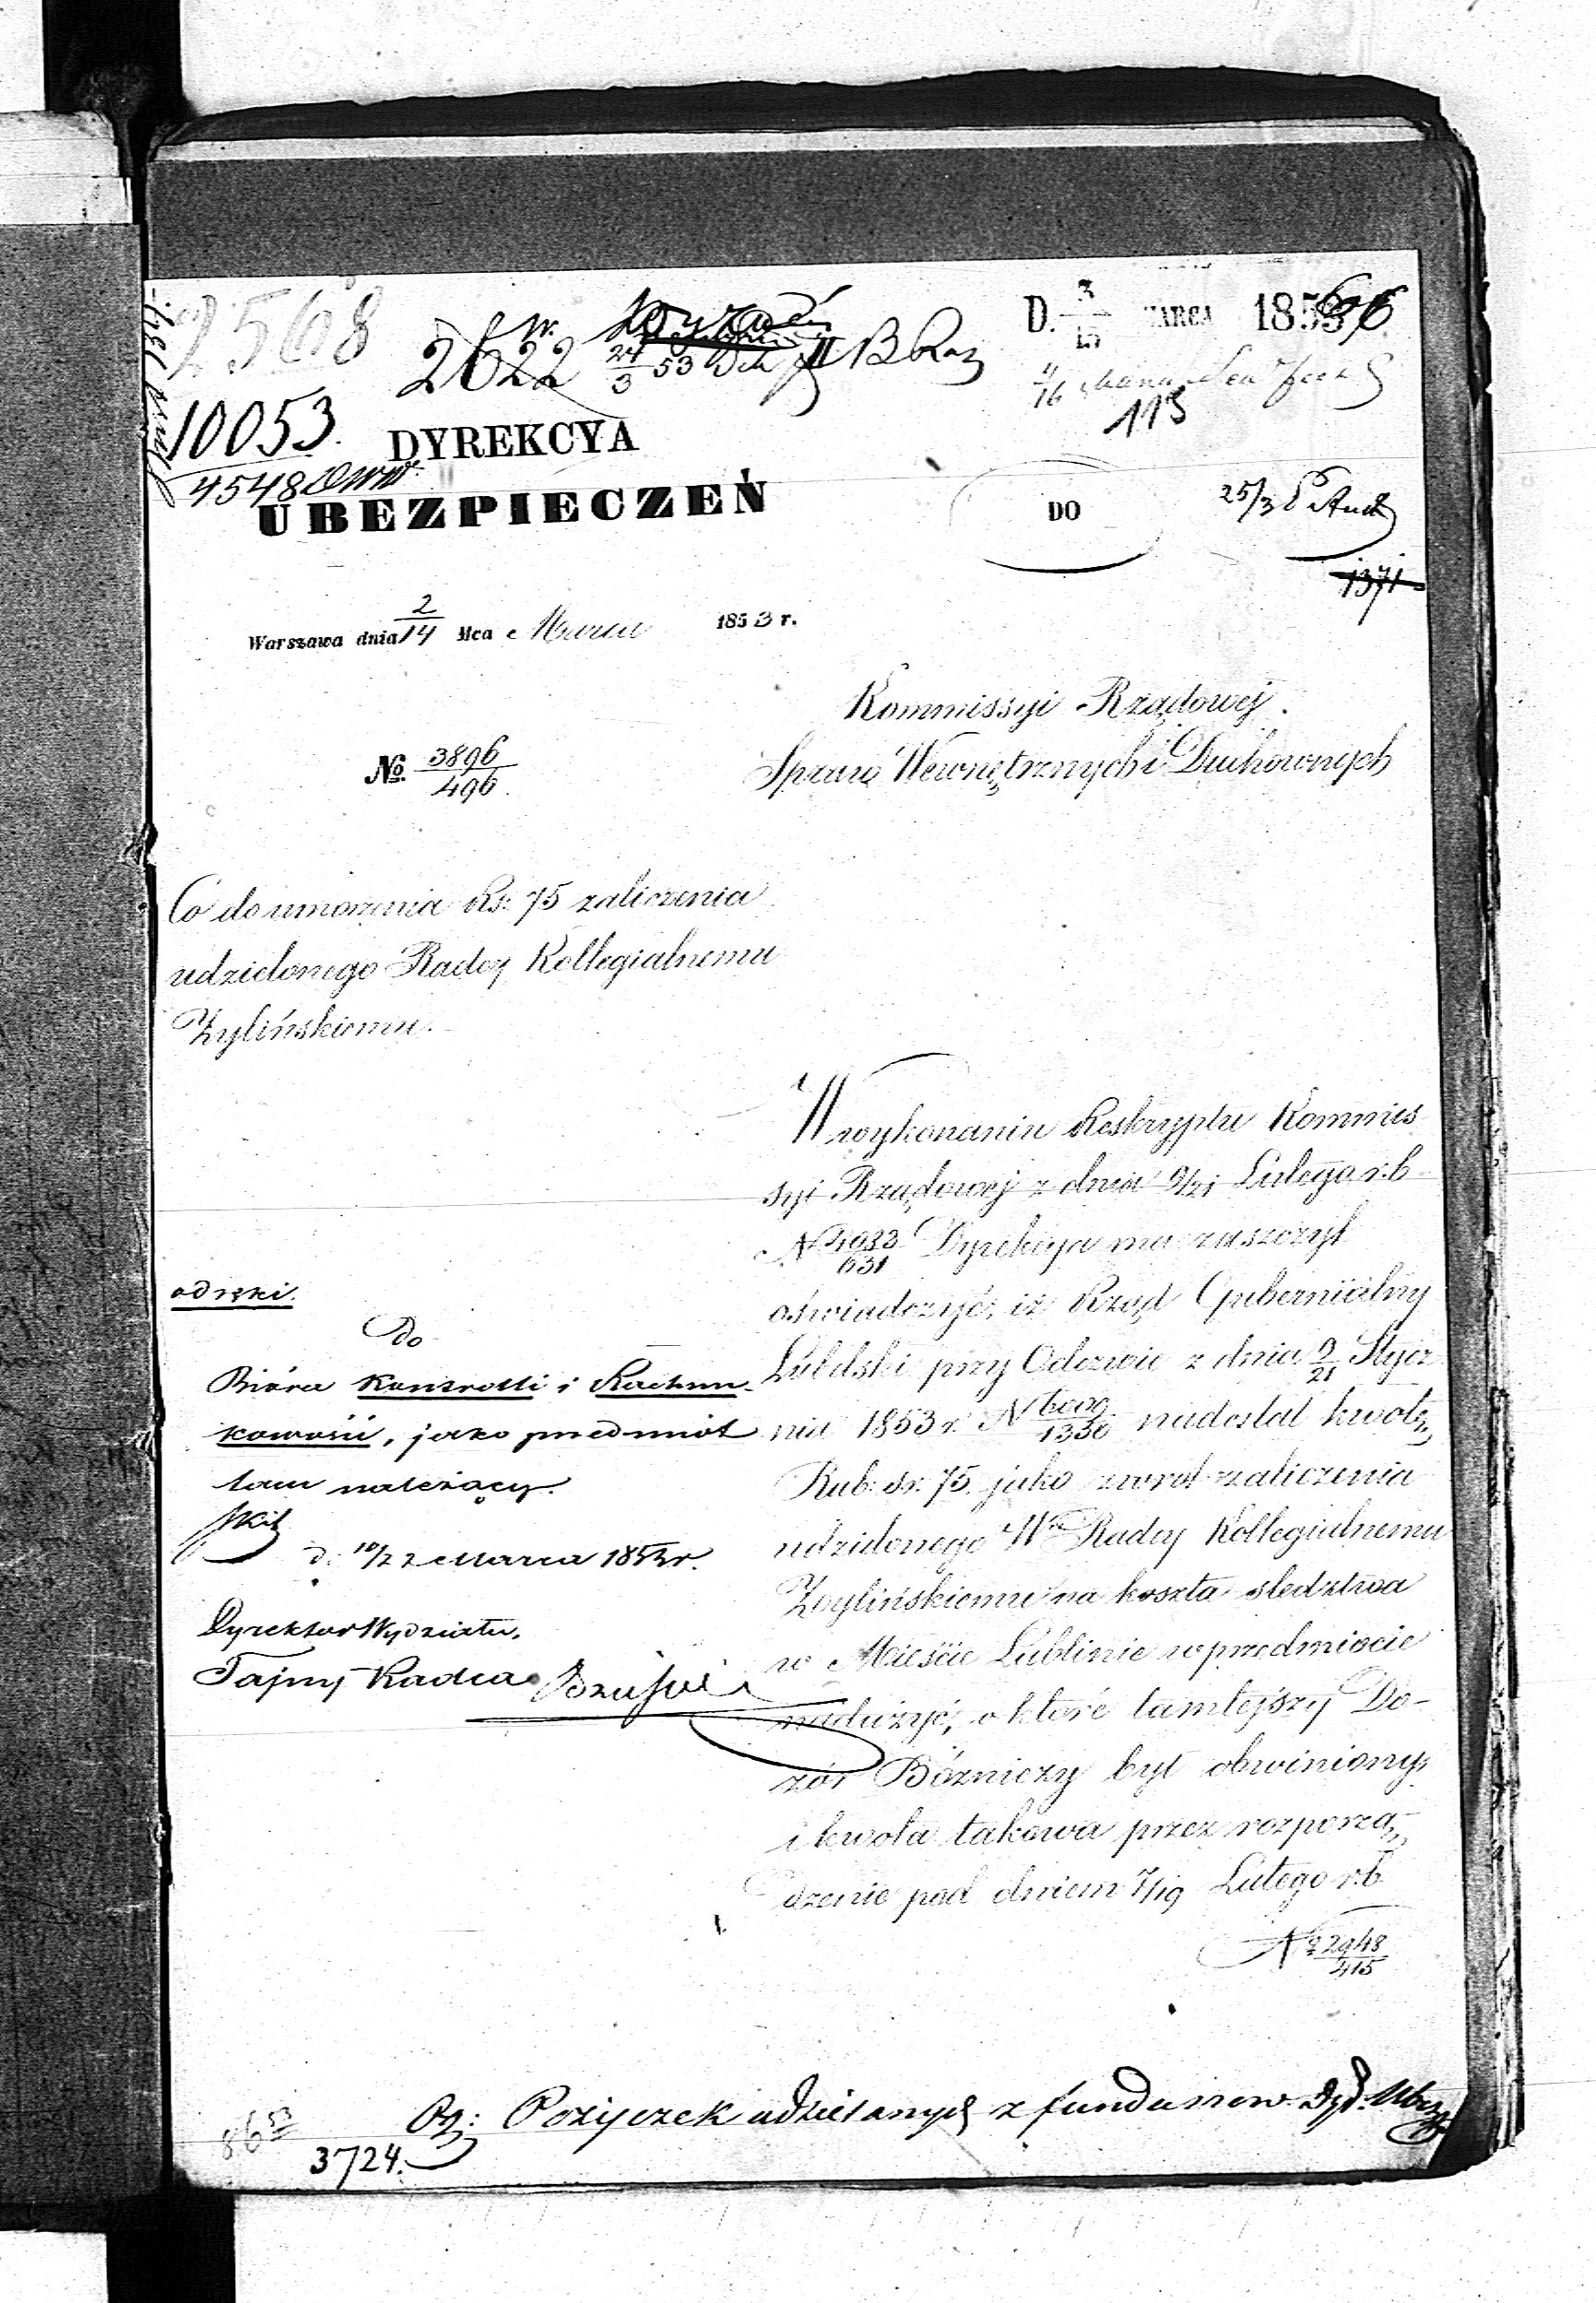 2568
2622
24/3 53
II B
D. 3/15 MARCA 1853
606
4/16
113
10053.
4548
DYREKCYA
UBEZPIECZEŃ
DO
25/3
1371
Warszawa dnia 2/14 Mca Marca 1853 r.
No. 3896/496.
Kommissyi Rządowej
Spraw Wewnętrznych i Duchownych
Co do umorzenia Rs: 75 zaliczenia
udzielonego Radcy Kollegialnemu
Żylińskiemu.
W wykonaniu Reskryptu Kommis
syi Rządowej z dnia 9/21 Lutego r. b.
N 4933/631 Dyrekcya ma zaszczyt
oświadczyć, iż Rząd Gubernialny
Lubelski przy Odezwie z dnia 9/21 Stycz
nia 1853 r. N /1330 nadesłał kwotę
Rub: sr. 75 jako zwrot zaliczenia
udzielonego Wu Radcy Kollegialnemu
Żylińskiemu na koszta śledztwa
w Mieście Lublinie w przedmiocie
nadużyć, o które tamtejszy Do-
zór Bóżniczy był obwiniony,
i kwota takowa przez rozporzą
dzenie pod dniem 7/19 Lutego r. b.
No 2948/415
od ręki.
Do
Bióra Kontrolli i Rachun-
kowości, jako przedmiot
tam należący.
d. 10/22 Marca 1853 r.
Dyrektor Wydziału,
Tajny Radca
Pożyczek udzielanych z funduszow Dyr: Ubezp
86 53
3724.